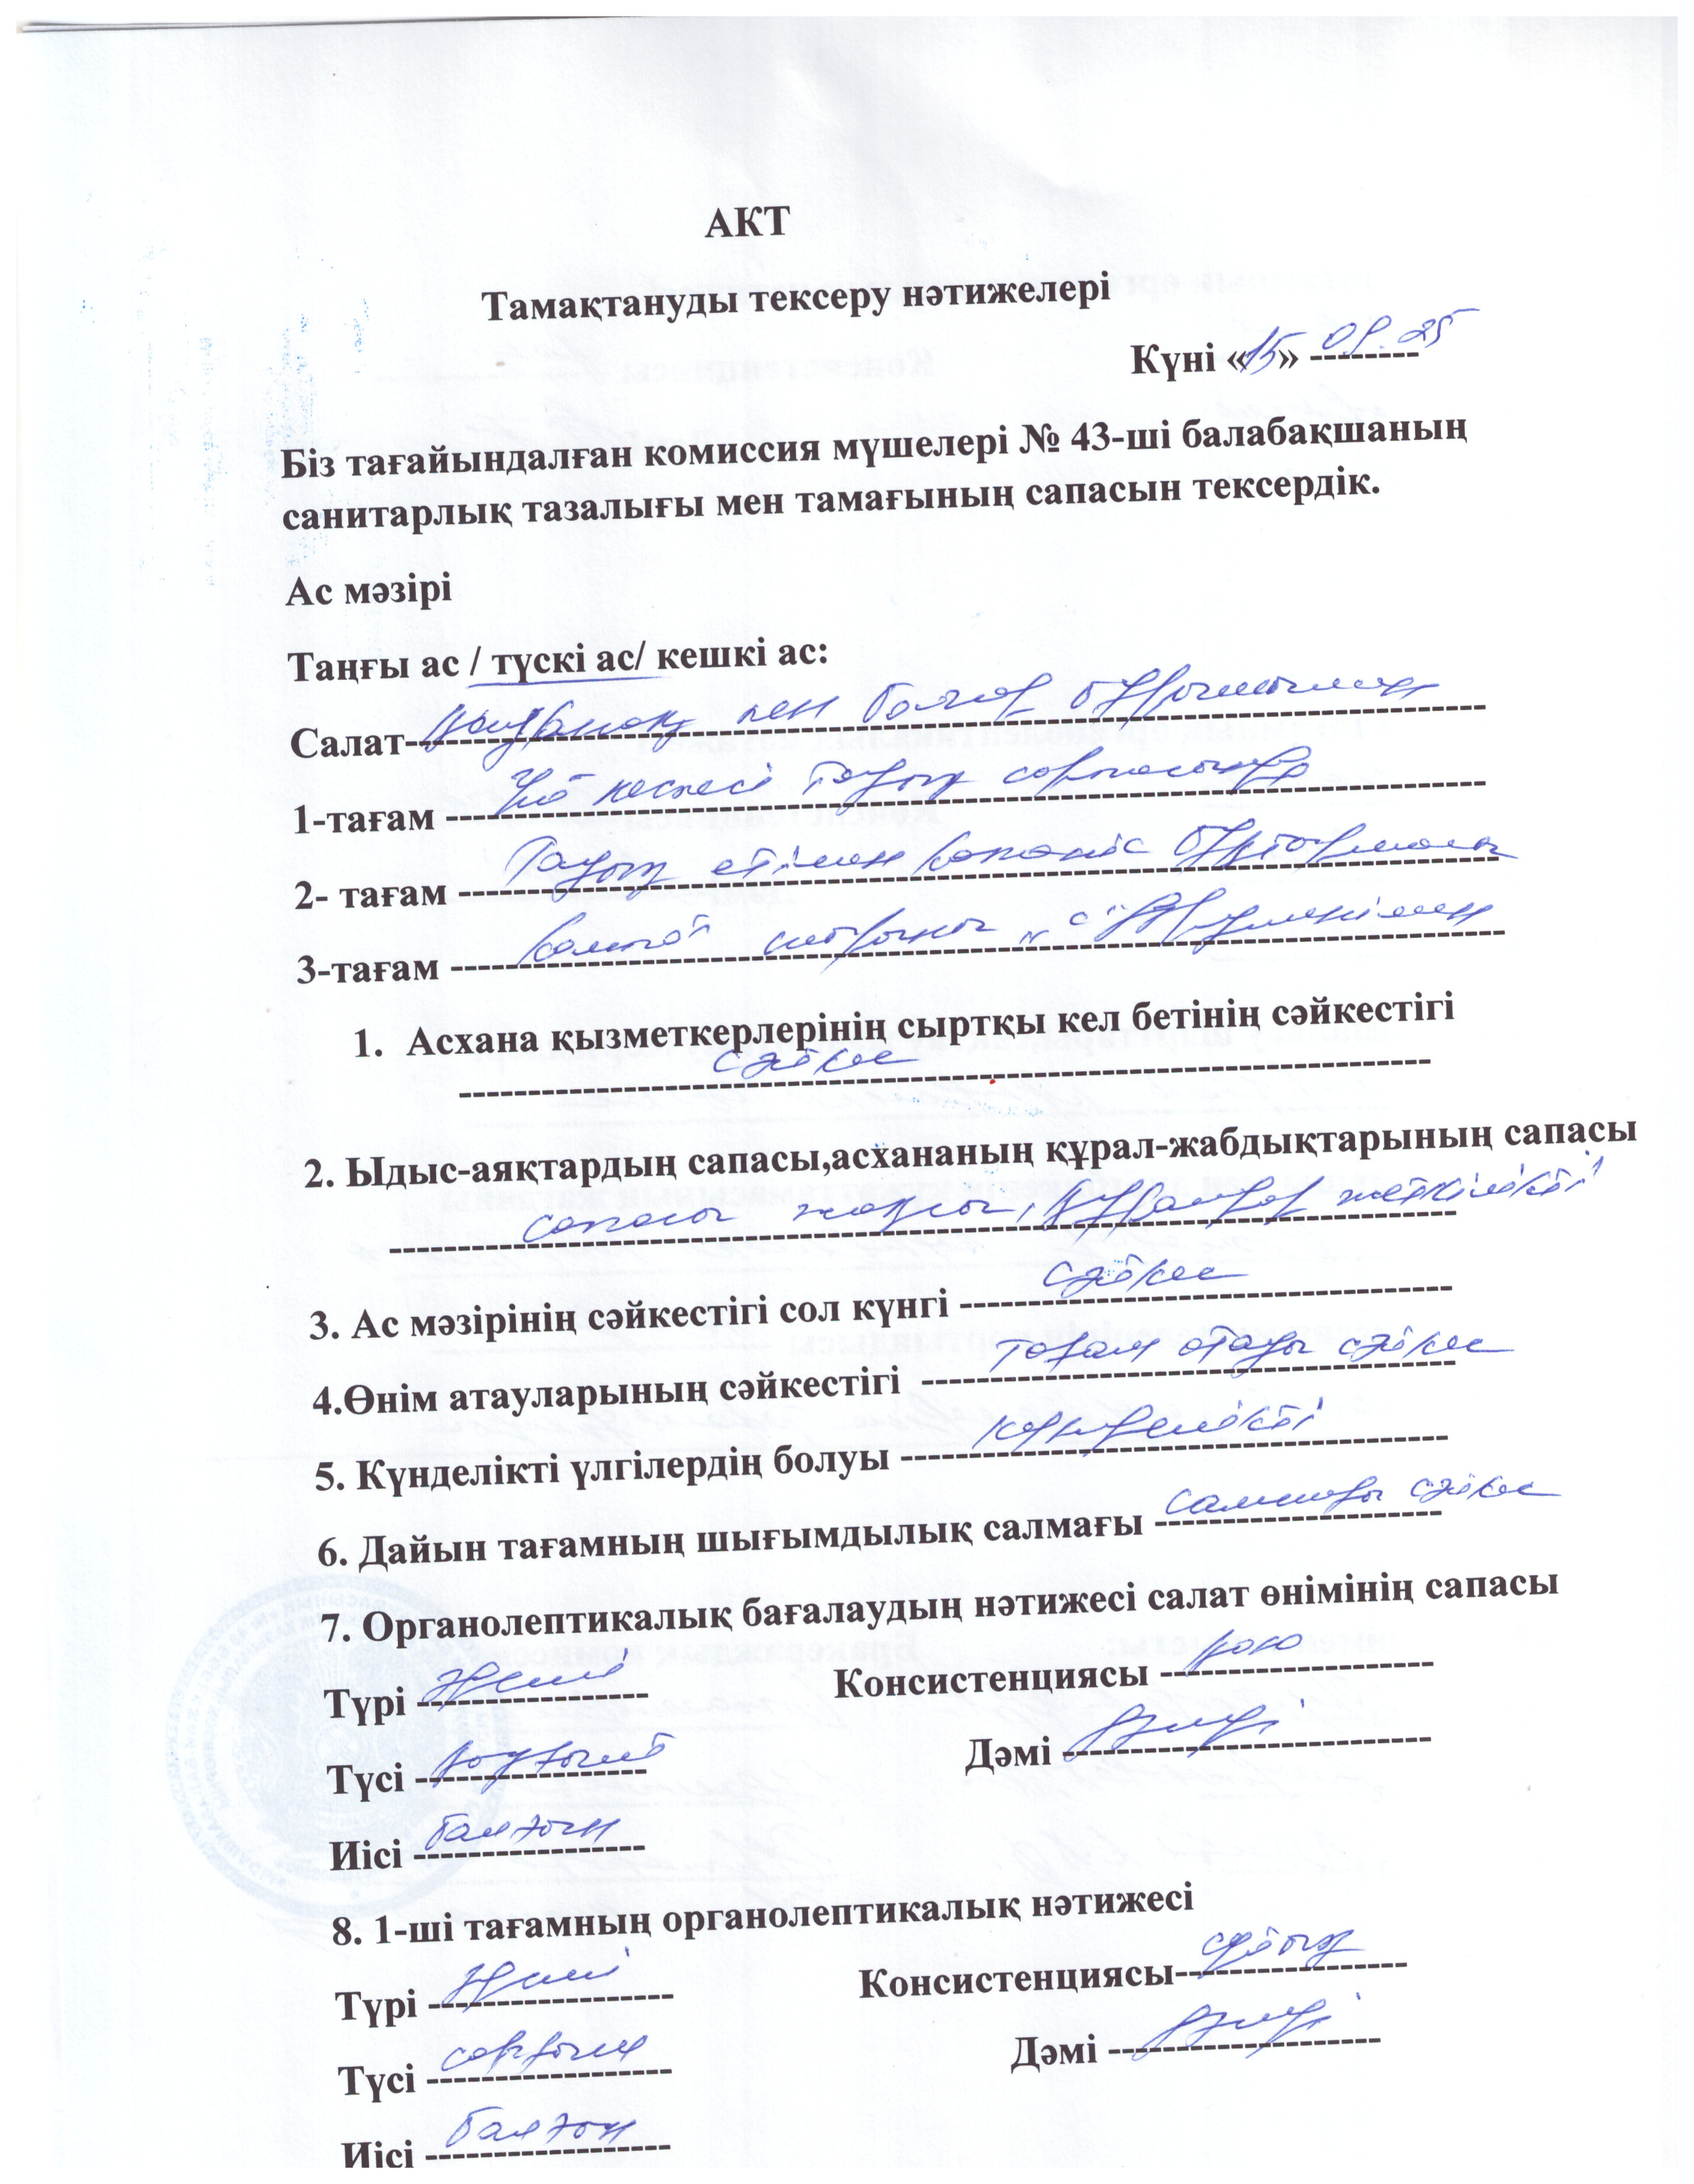 АКТ
Тамақтануды тексеру нәтижелері
Күні «15» 09.25
Біз тағайындалған комиссия мүшелері № 43-ші балабақшаның
санитарлық тазалығы мен тамағының сапасын тексердік.
Ас мәзірі
Таңғы ас / түскі ас/ кешкі ас:
Салат- қырыққабат пен болгар бұрышымен
1-тағам Үй кеспесі тауық сорпасында
2- тағам Тауық етімен көкөніс бұқтырмасы
3-тағам
1. Асхана қызметкерлерінің сыртқы кел бетінің сәйкестігі
сәйкес
2. Ыдыс-аяқтардың сапасы,асхананың құрал-жабдықтарының сапасы
сапасы жақсы, құралдар жеткілікті
3. Ас мәзірінің сәйкестігі сол күнгі сәйкес
4.Өнім атауларының сәйкестігі тағам атауы сәйкес
5. Күнделікті үлгілердің болуы күнделікті
6. Дайын тағамның шығымдылық салмағы салмағы сәйкес
7. Органолептикалық бағалаудың нәтижесі салат өнімінің сапасы
Түрі әдемі Консистенциясы қою
Түсі Дәмі дәмді
Иісі балғын
8. 1-ші тағамның органолептикалық нәтижесі
Түрі әдемі Консистенциясы- сұйық
Түсі сарғыш Дәмі дәмді
Иісі балғын